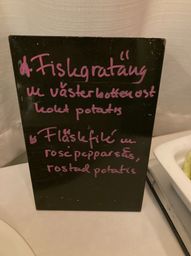 * Fiskgratäng
m västerbottenost
kokt potatis
* Fläskfilé m
rosépepparsås,
rostad potatis